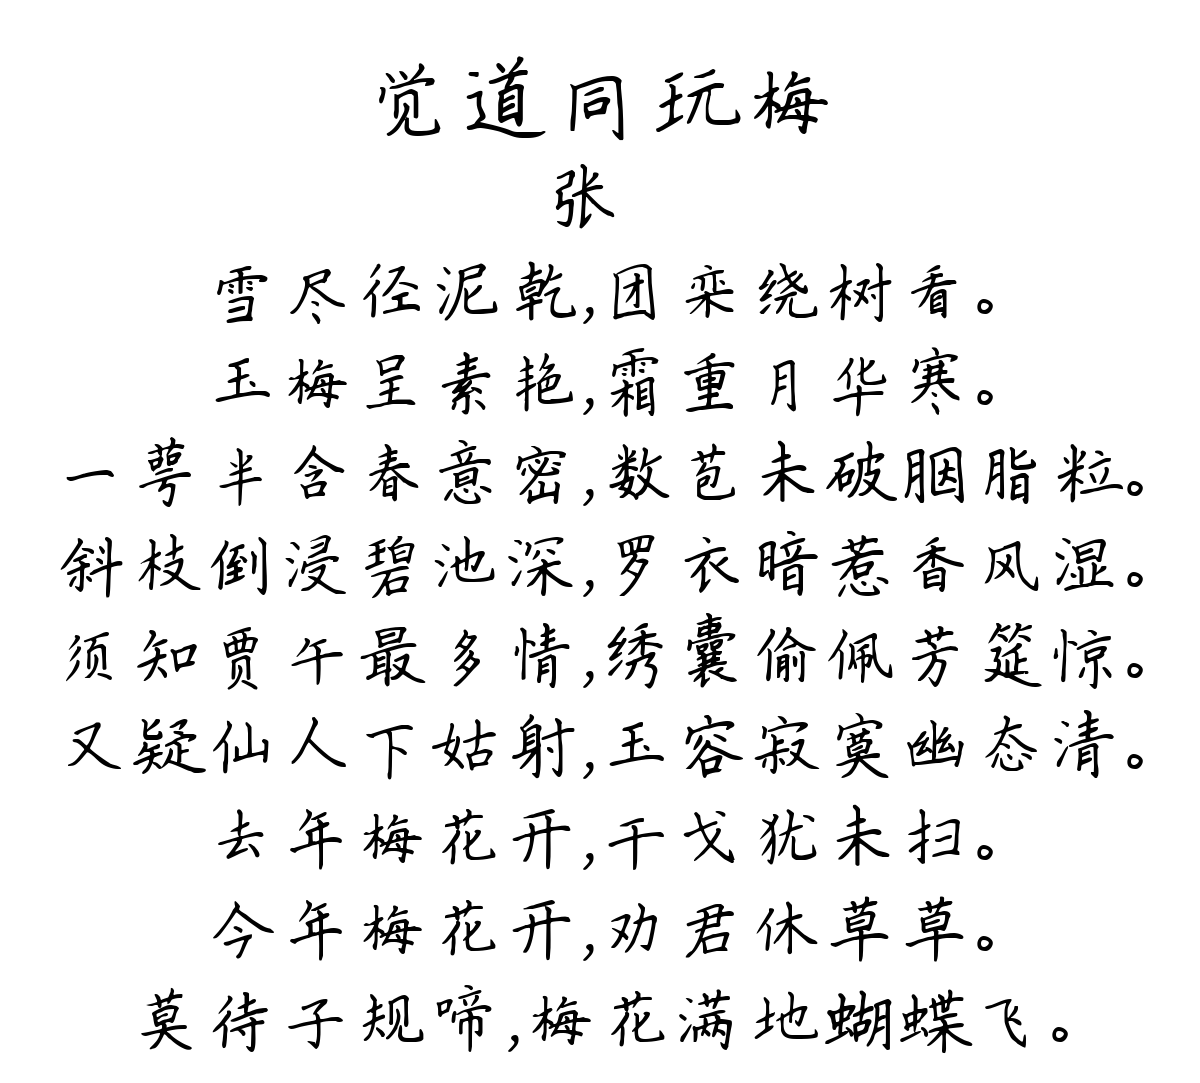 觉道同玩梅
张
雪尽径泥乾,团栾绕树看。
玉梅呈素艳,霜重月华寒。
一萼半含春意密,数苞未破胭脂粒。
斜枝倒浸碧池深,罗衣暗惹香风湿。
须知贾午最多情,绣囊偷佩芳筵惊。
又疑仙人下姑射,玉容寂寞幽态清。
去年梅花开,干戈犹未扫。
今年梅花开,劝君休草草。
莫待子规啼,梅花满地蝴蝶飞。